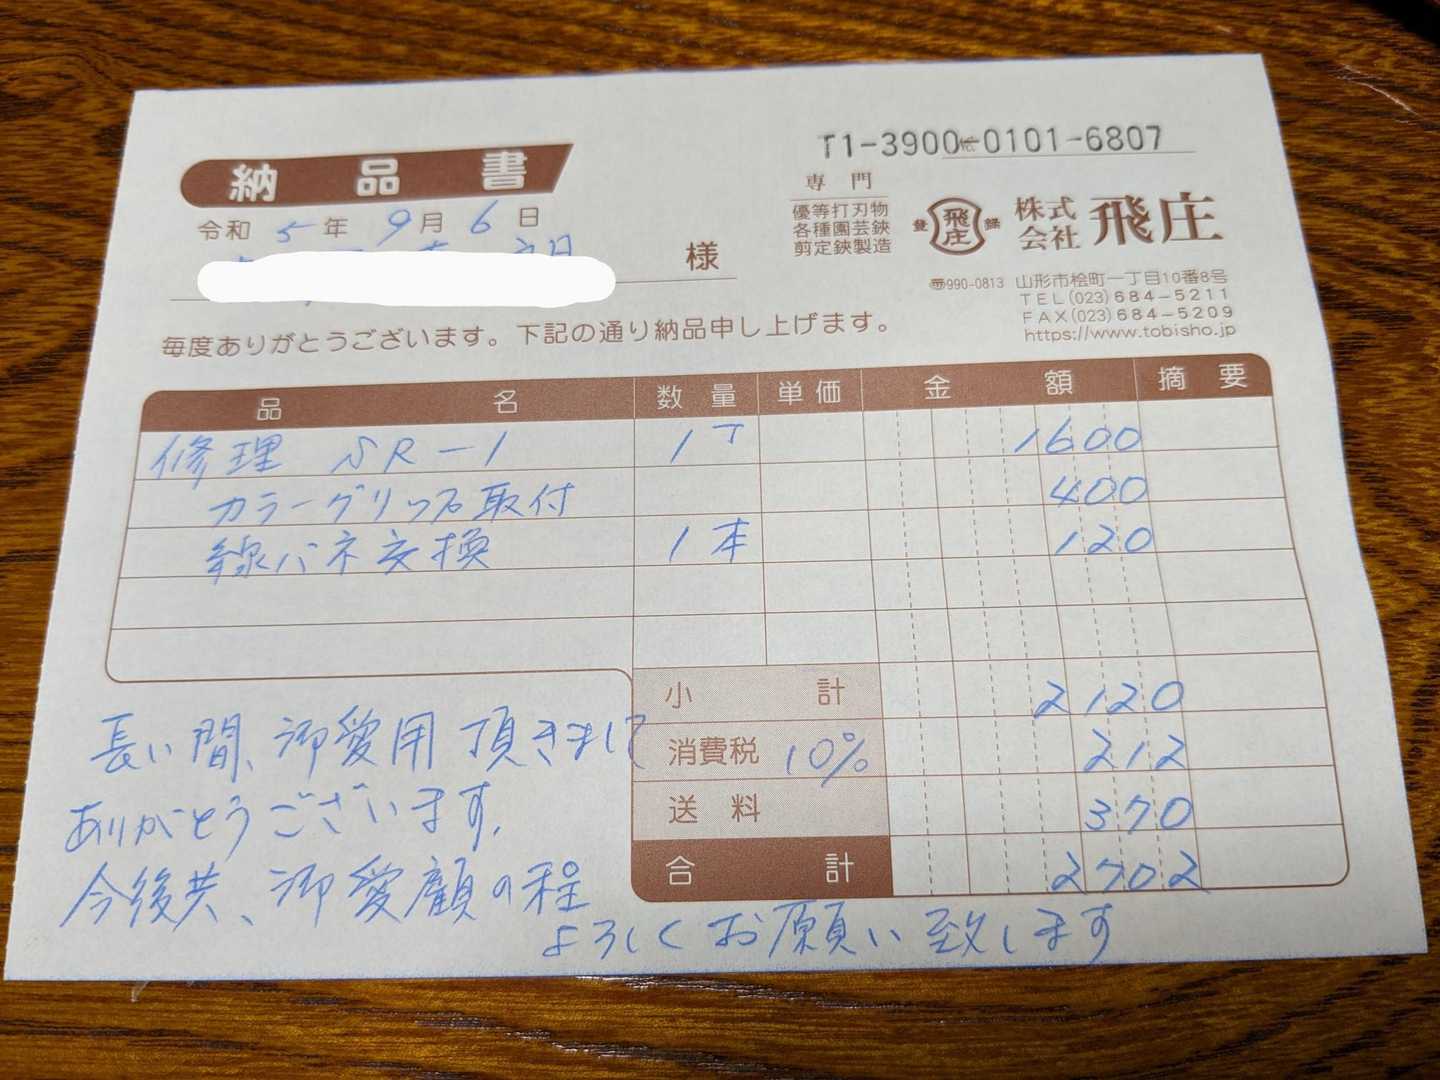 納品書
令和5年9月6日
様
毎度ありがとうございます。下記の通り納品申し上げます。
T1-3900-0101-6807
専門
優等打刃物
各種園芸鋏
剪定鋏製造
登 飛庄 録
株式会社 飛庄
〒990-0813 山形市桧町一丁目10番8号
TEL(023)684-5211
FAX(023)684-5209
https://www.tobisho.jp
品名 数量 単価 金額 摘要
修理 SR-1 1丁 1600
カラーグリップ取付 400
線バネ交換 1本 120
小計 2120
消費税 10% 212
送料 370
合計 2702
長い間、御愛用頂きまして
ありがとうございます。
今後共、御愛顧の程
よろしくお願い致します